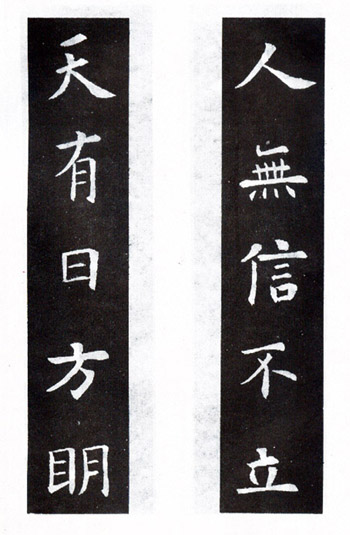 人無信不立
天有日方明